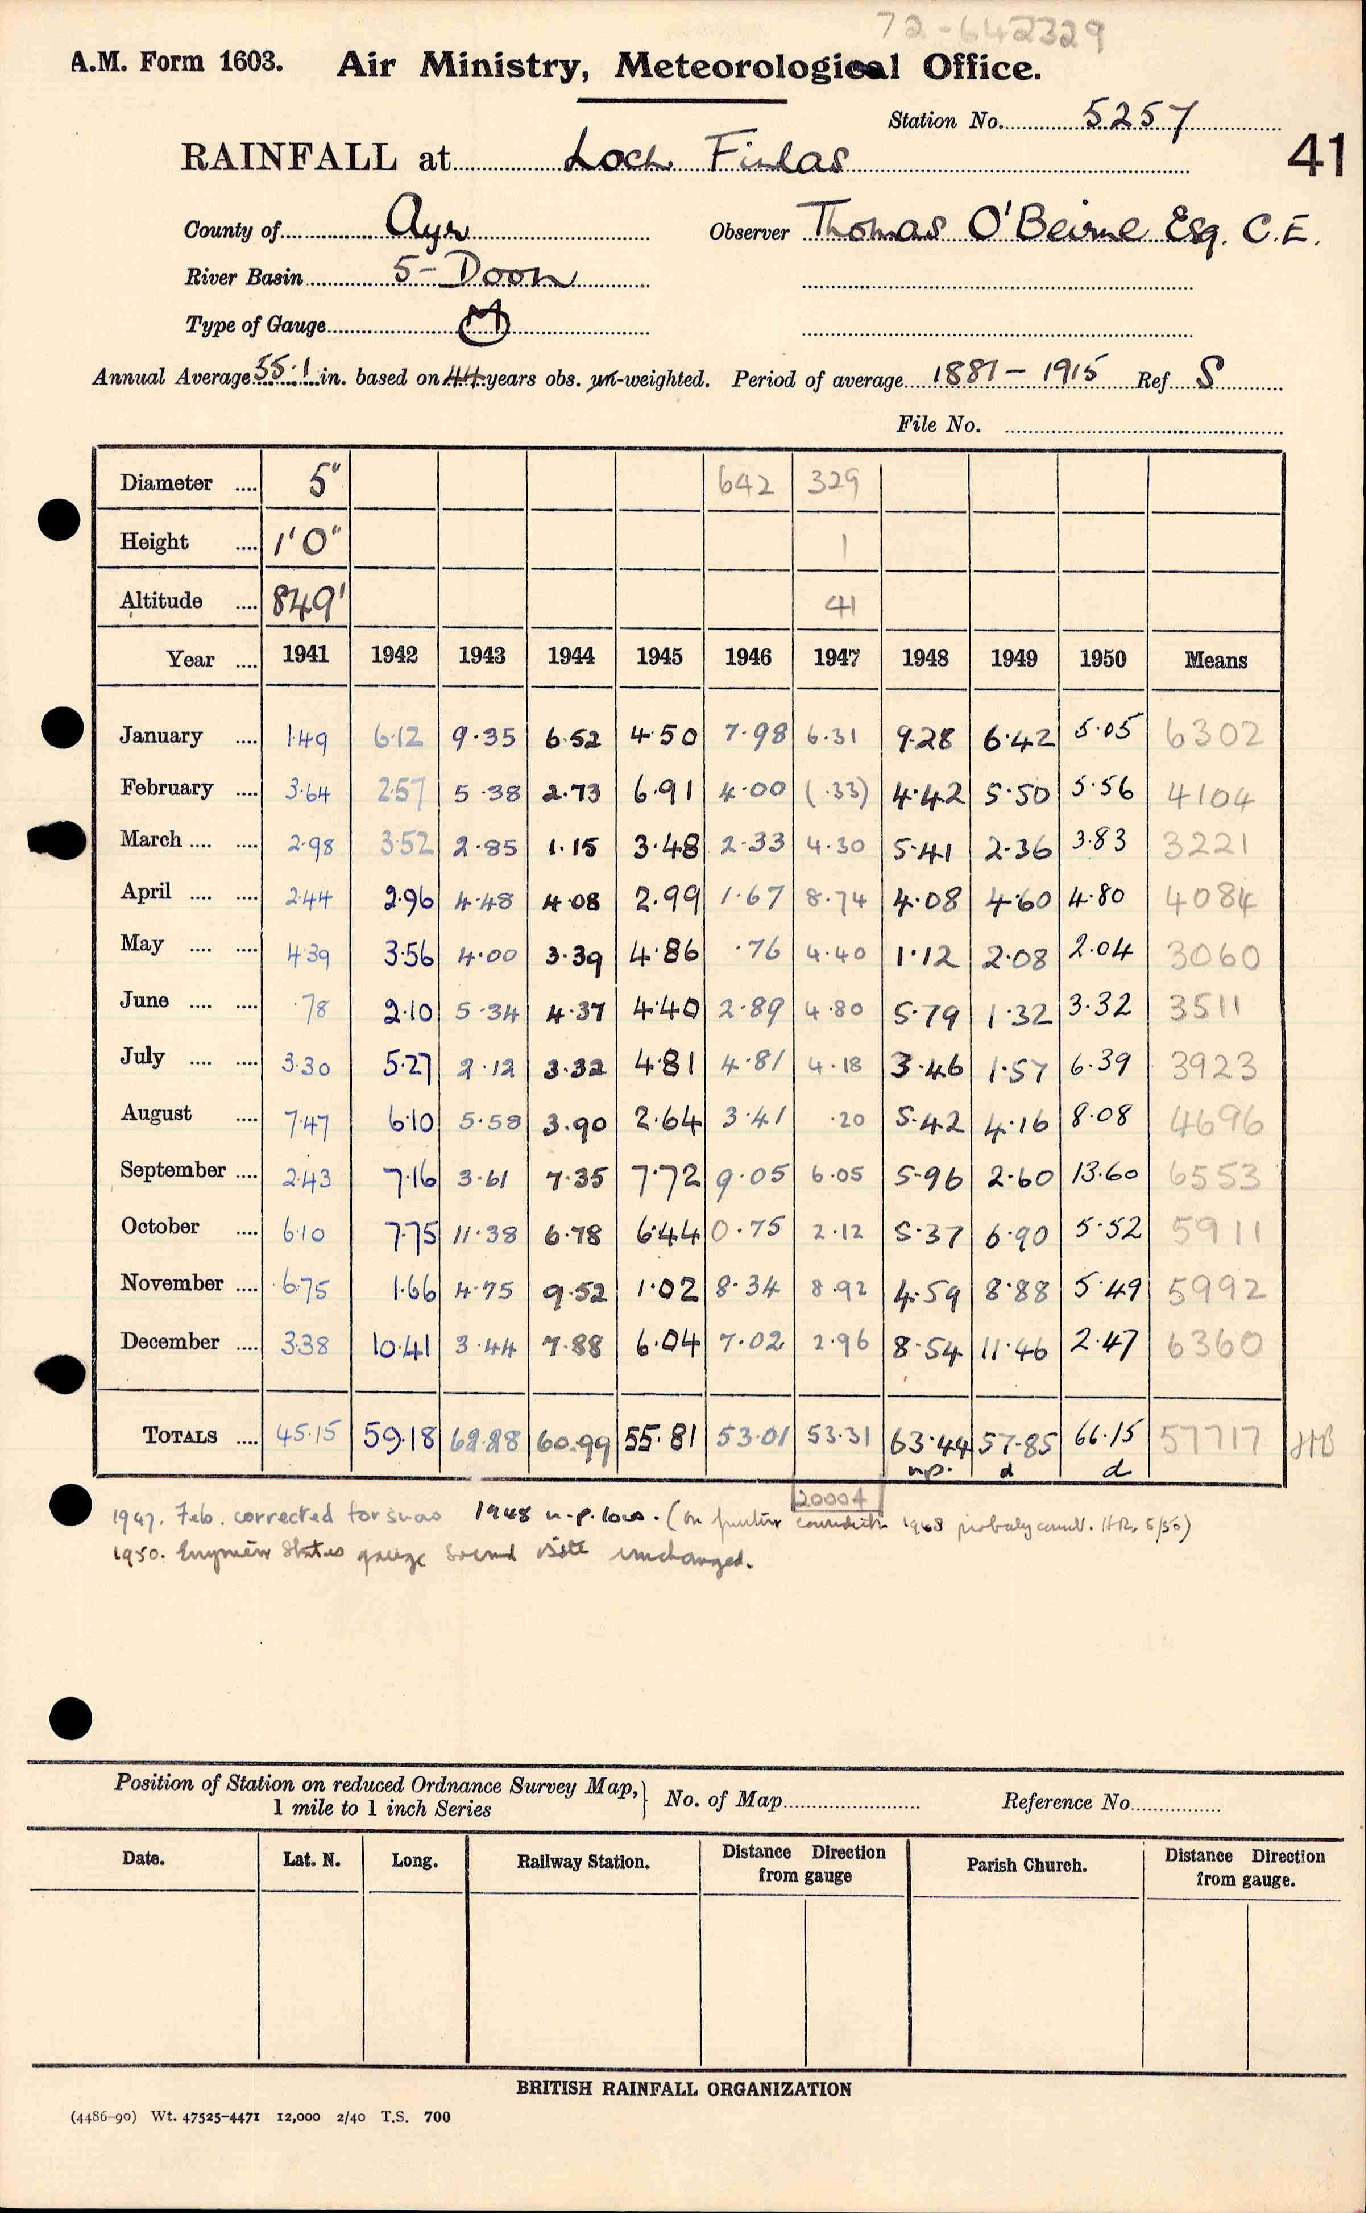 72-642329
A.M. Form 1603. Air Ministry, Meteorological Office.
Station No. 5257
RAINFALL at Loch Finlas 41
County of Ayr Observer Thomas O'Beirne Esq. C.E.
River Basin 5-Doon
Type of Gauge M
Annual Average 55.1 in. based on 44 years obs. un-weighted. Period of average 1881-1915 Ref S
File No.
Diameter .... 5" 642 329
Height .... 1'0" 1
Altitude .... 849' 41
Year .... 1941 1942 1943 1944 1945 1946 1947 1948 1949 1950 Means
January .... 1.49 6.12 9.35 6.52 4.50 7.98 6.31 9.28 6.42 5.05 6302
February .... 3.64 2.57 5.38 2.73 6.91 4.00 (.33) 4.42 5.50 5.56 4104
March .... .... 2.98 3.52 2.85 1.15 3.48 2.33 4.30 5.41 2.36 3.83 3221
April .... .... 2.44 2.96 4.48 4.08 2.99 1.67 8.74 4.08 4.60 4.80 4084
May .... .... 4.39 3.56 4.00 3.39 4.86 .76 4.40 1.12 2.08 2.04 3060
June .... .... .78 2.10 5.34 4.37 4.40 2.89 4.80 5.79 1.32 3.32 3511
July .... .... 3.30 5.27 2.12 3.32 4.81 4.81 4.18 3.46 1.57 6.39 3923
August .... 7.47 6.10 5.58 3.90 2.64 3.41 .20 5.42 4.16 8.08 4696
September .... 2.43 7.16 3.61 7.35 7.72 9.05 6.05 5.96 2.60 13.60 6553
October .... 6.10 7.75 11.38 6.78 6.44 0.75 2.12 5.37 6.90 5.52 5911
November .... 6.75 1.66 4.75 9.52 1.02 8.34 8.92 4.59 8.88 5.49 5992
December .... 3.38 10.41 3.44 7.88 6.04 7.02 2.96 8.54 11.46 2.47 6360
TOTALS .... 45.15 59.18 62.28 60.99 55.81 53.01 53.31 63.44 57.85 66.15 57717
n.p. d d
20004
1947. Feb. corrected for snow 1948 n.p. low. (on further 1948 probably H.R. 5/50)
1950. Engineer States gauge sound site unchanged.
Position of Station on reduced Ordnance Survey Map, No. of Map Reference No.
1 mile to 1 inch Series
Date. Lat. N. Long. Railway Station. Distance Direction from gauge Parish Church. Distance Direction from gauge.
BRITISH RAINFALL ORGANIZATION
(4486-90) Wt. 47525-4471 12,000 2/40 T.S. 700